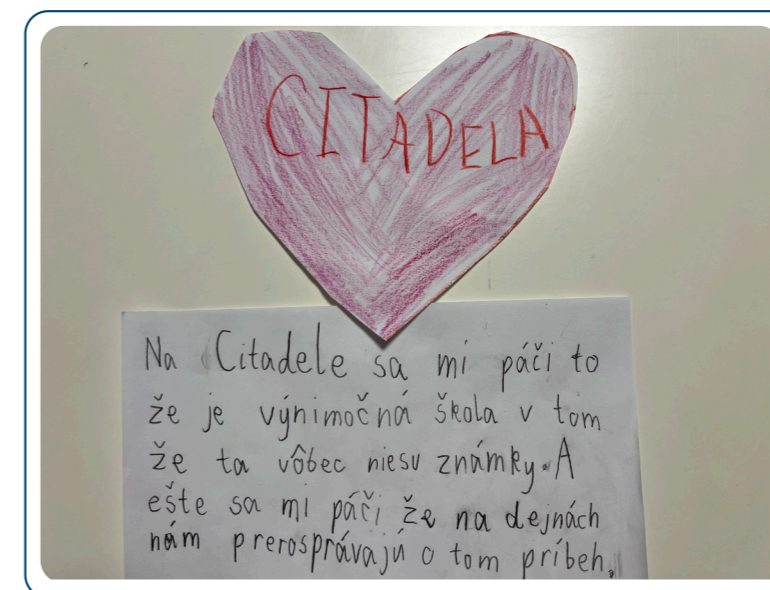 CITADELA
Na Citadele sa mi páči to
že je výnimočná škola v tom
že ta vôbec niesu známky. A
ešte sa mi páči že na dejnách
nám prerosprávajú o tom príbeh.